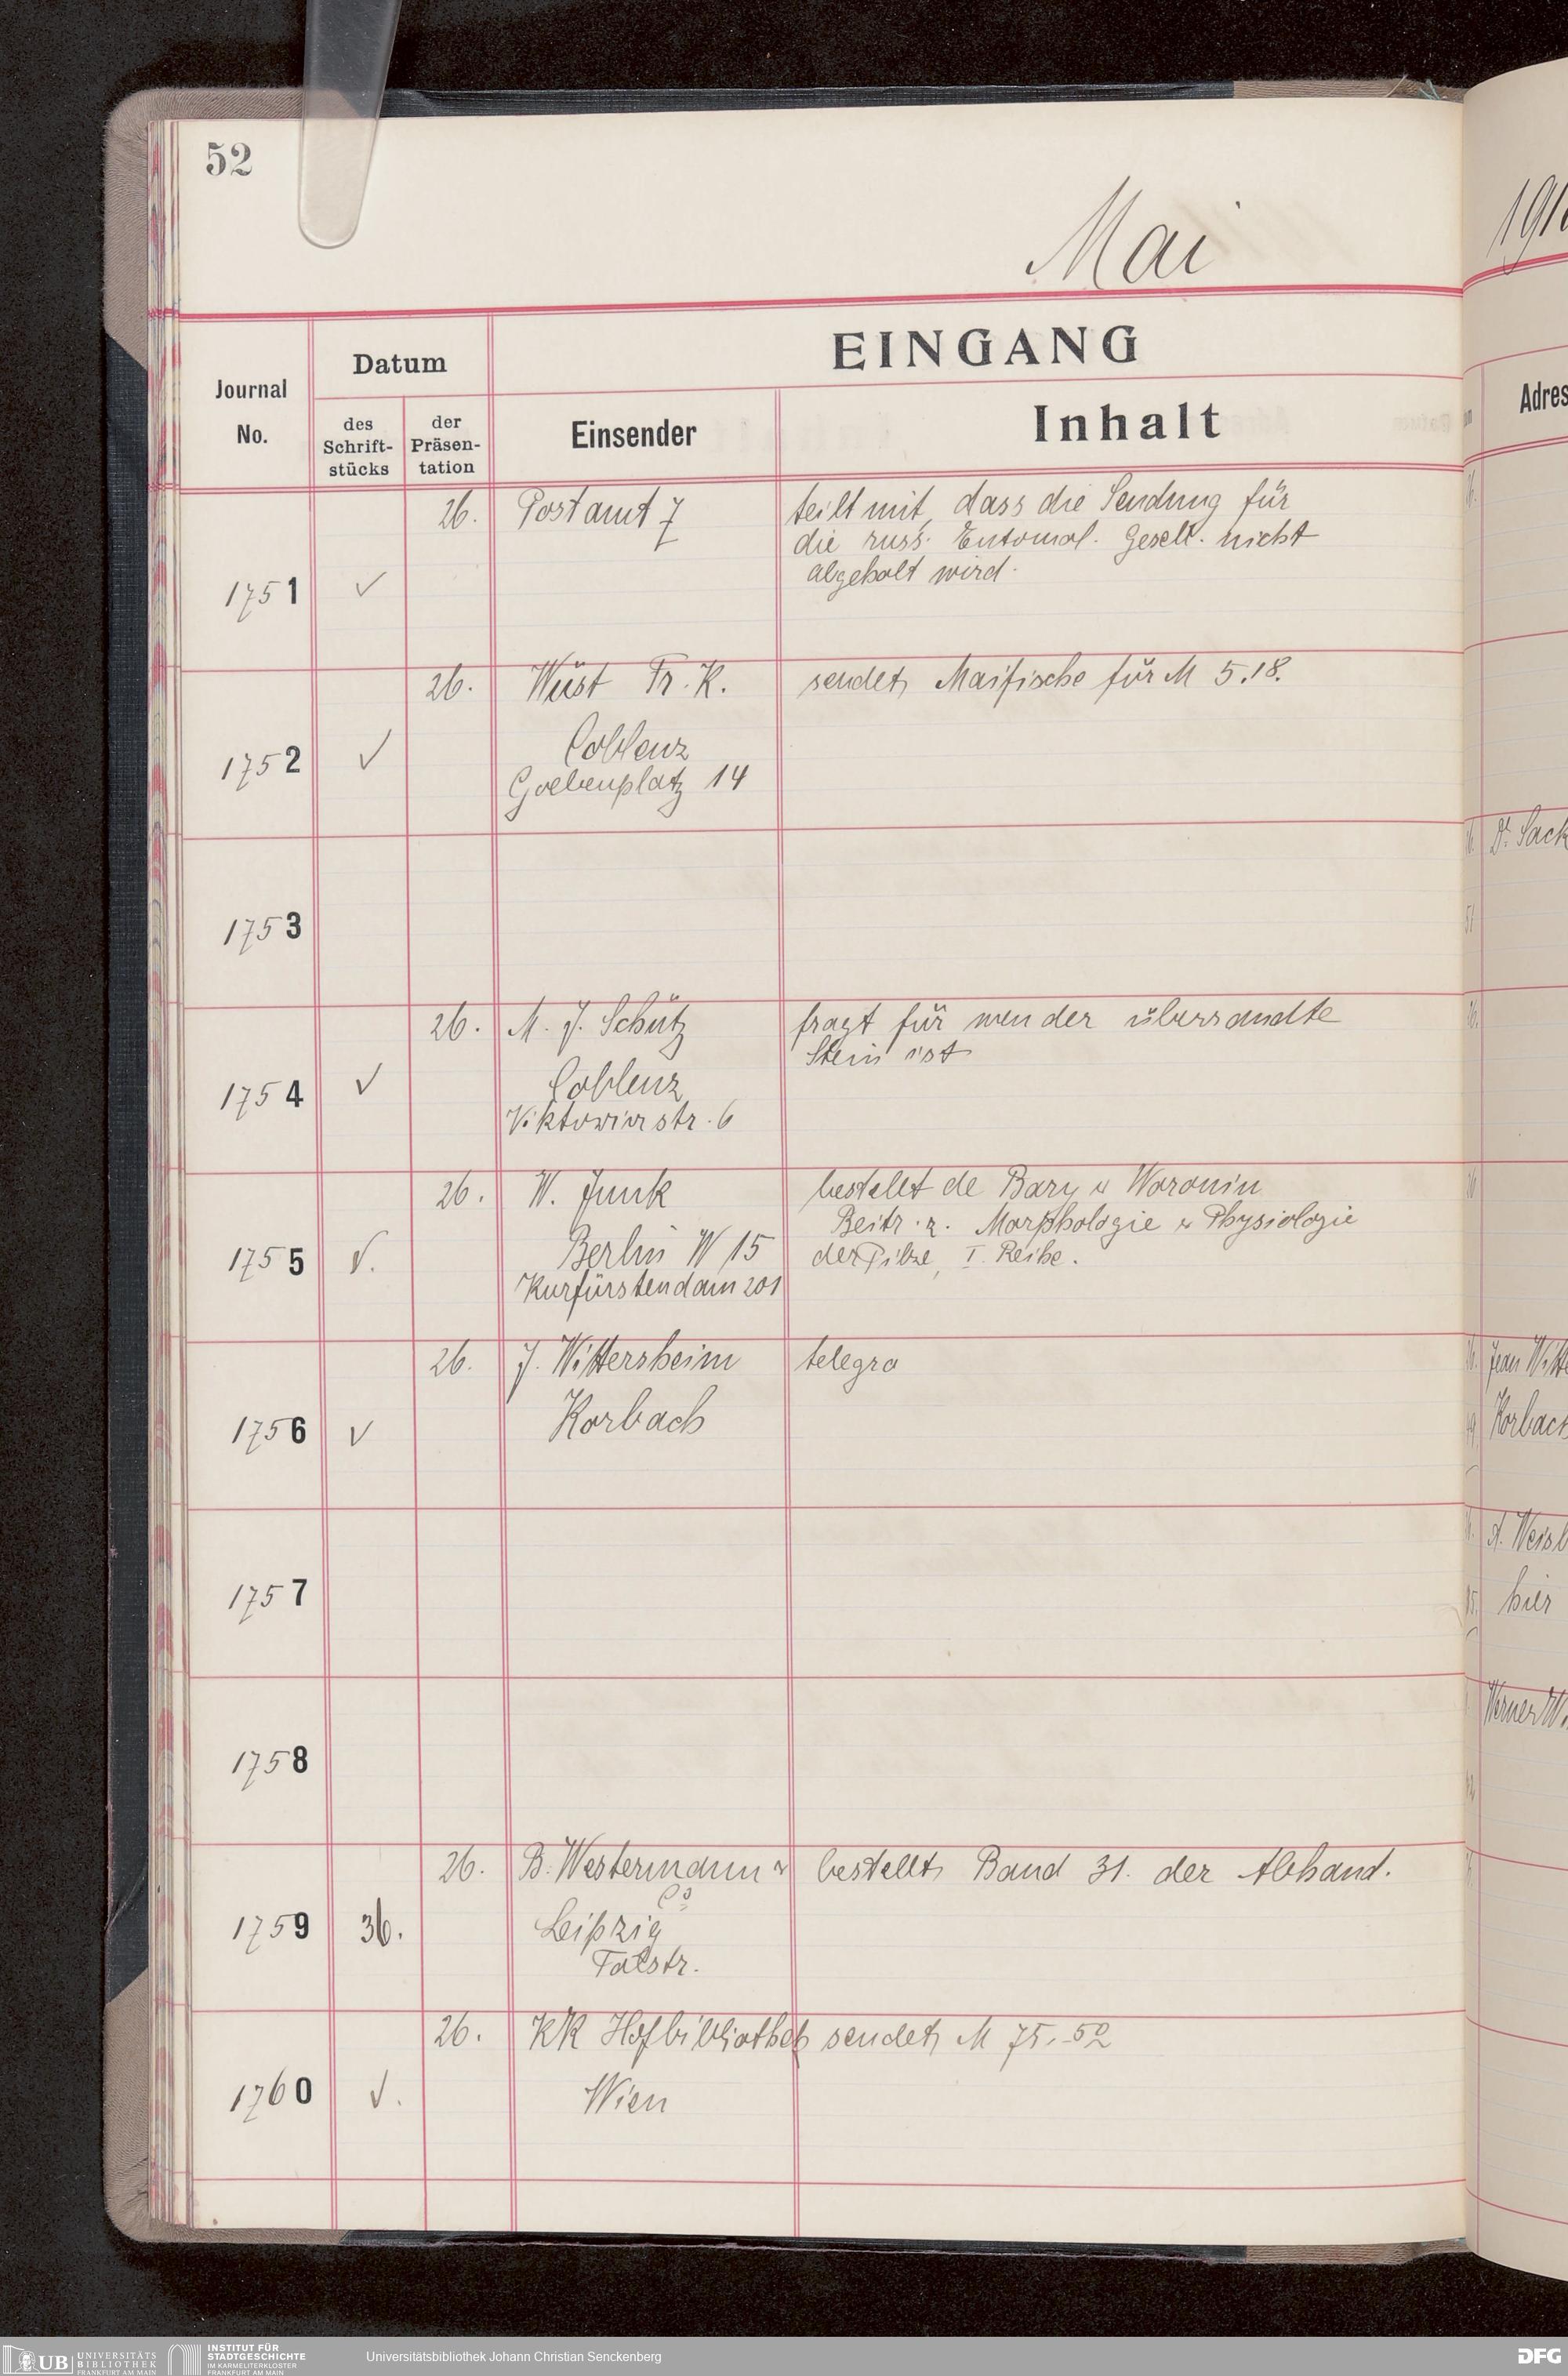 52
Mai
191
EINGANG
Journal
No.
Datum
des
Schrift-
stücks
der
Präsen-
tation
Einsender
Inhalt
Adres
26. Postamt 7 teilt mit, dass die Sendung für
die russ. Entomol. Gesell. nicht
abgeholt wird.
1751 ✓
26. Wüst Fr. K. sendet Maifische für M 5.18.
Coblenz
1752 ✓
Goebenplatz 14
Dr. Sack
1753
26. M. J. Schütz fragt für wen der übersandte
Stein ist
Coblenz
1754 ✓
Viktoriastr. 6
26. W. Junk bestellt de Bary u Woronin
Beitr. z. Morphologie u Physiologie
Berlin W 15 der Pilze, I. Reihe.
1755 ✓.
Kurfürstendam 201
26. J. Wittersheim telegra
Jean Witte
Korbach
Korbach
1756 ✓
A. Weisb
1757
hier
Werner W.
1758
26. B. Westermann u bestellt Band 31. der Abhand.
Co
Leipzig
1759 36.
Talstr.
26. KK Hofbibliothek sendet M 75.-50
Wien
1760 ✓.
UB UNIVERSITÄTS
BIBLIOTHEK
FRANKFURT AM MAIN
INSTITUT FÜR
STADTGESCHICHTE
IM KARMELITERKLOSTER
FRANKFURT AM MAIN
Universitätsbibliothek Johann Christian Senckenberg
DFG